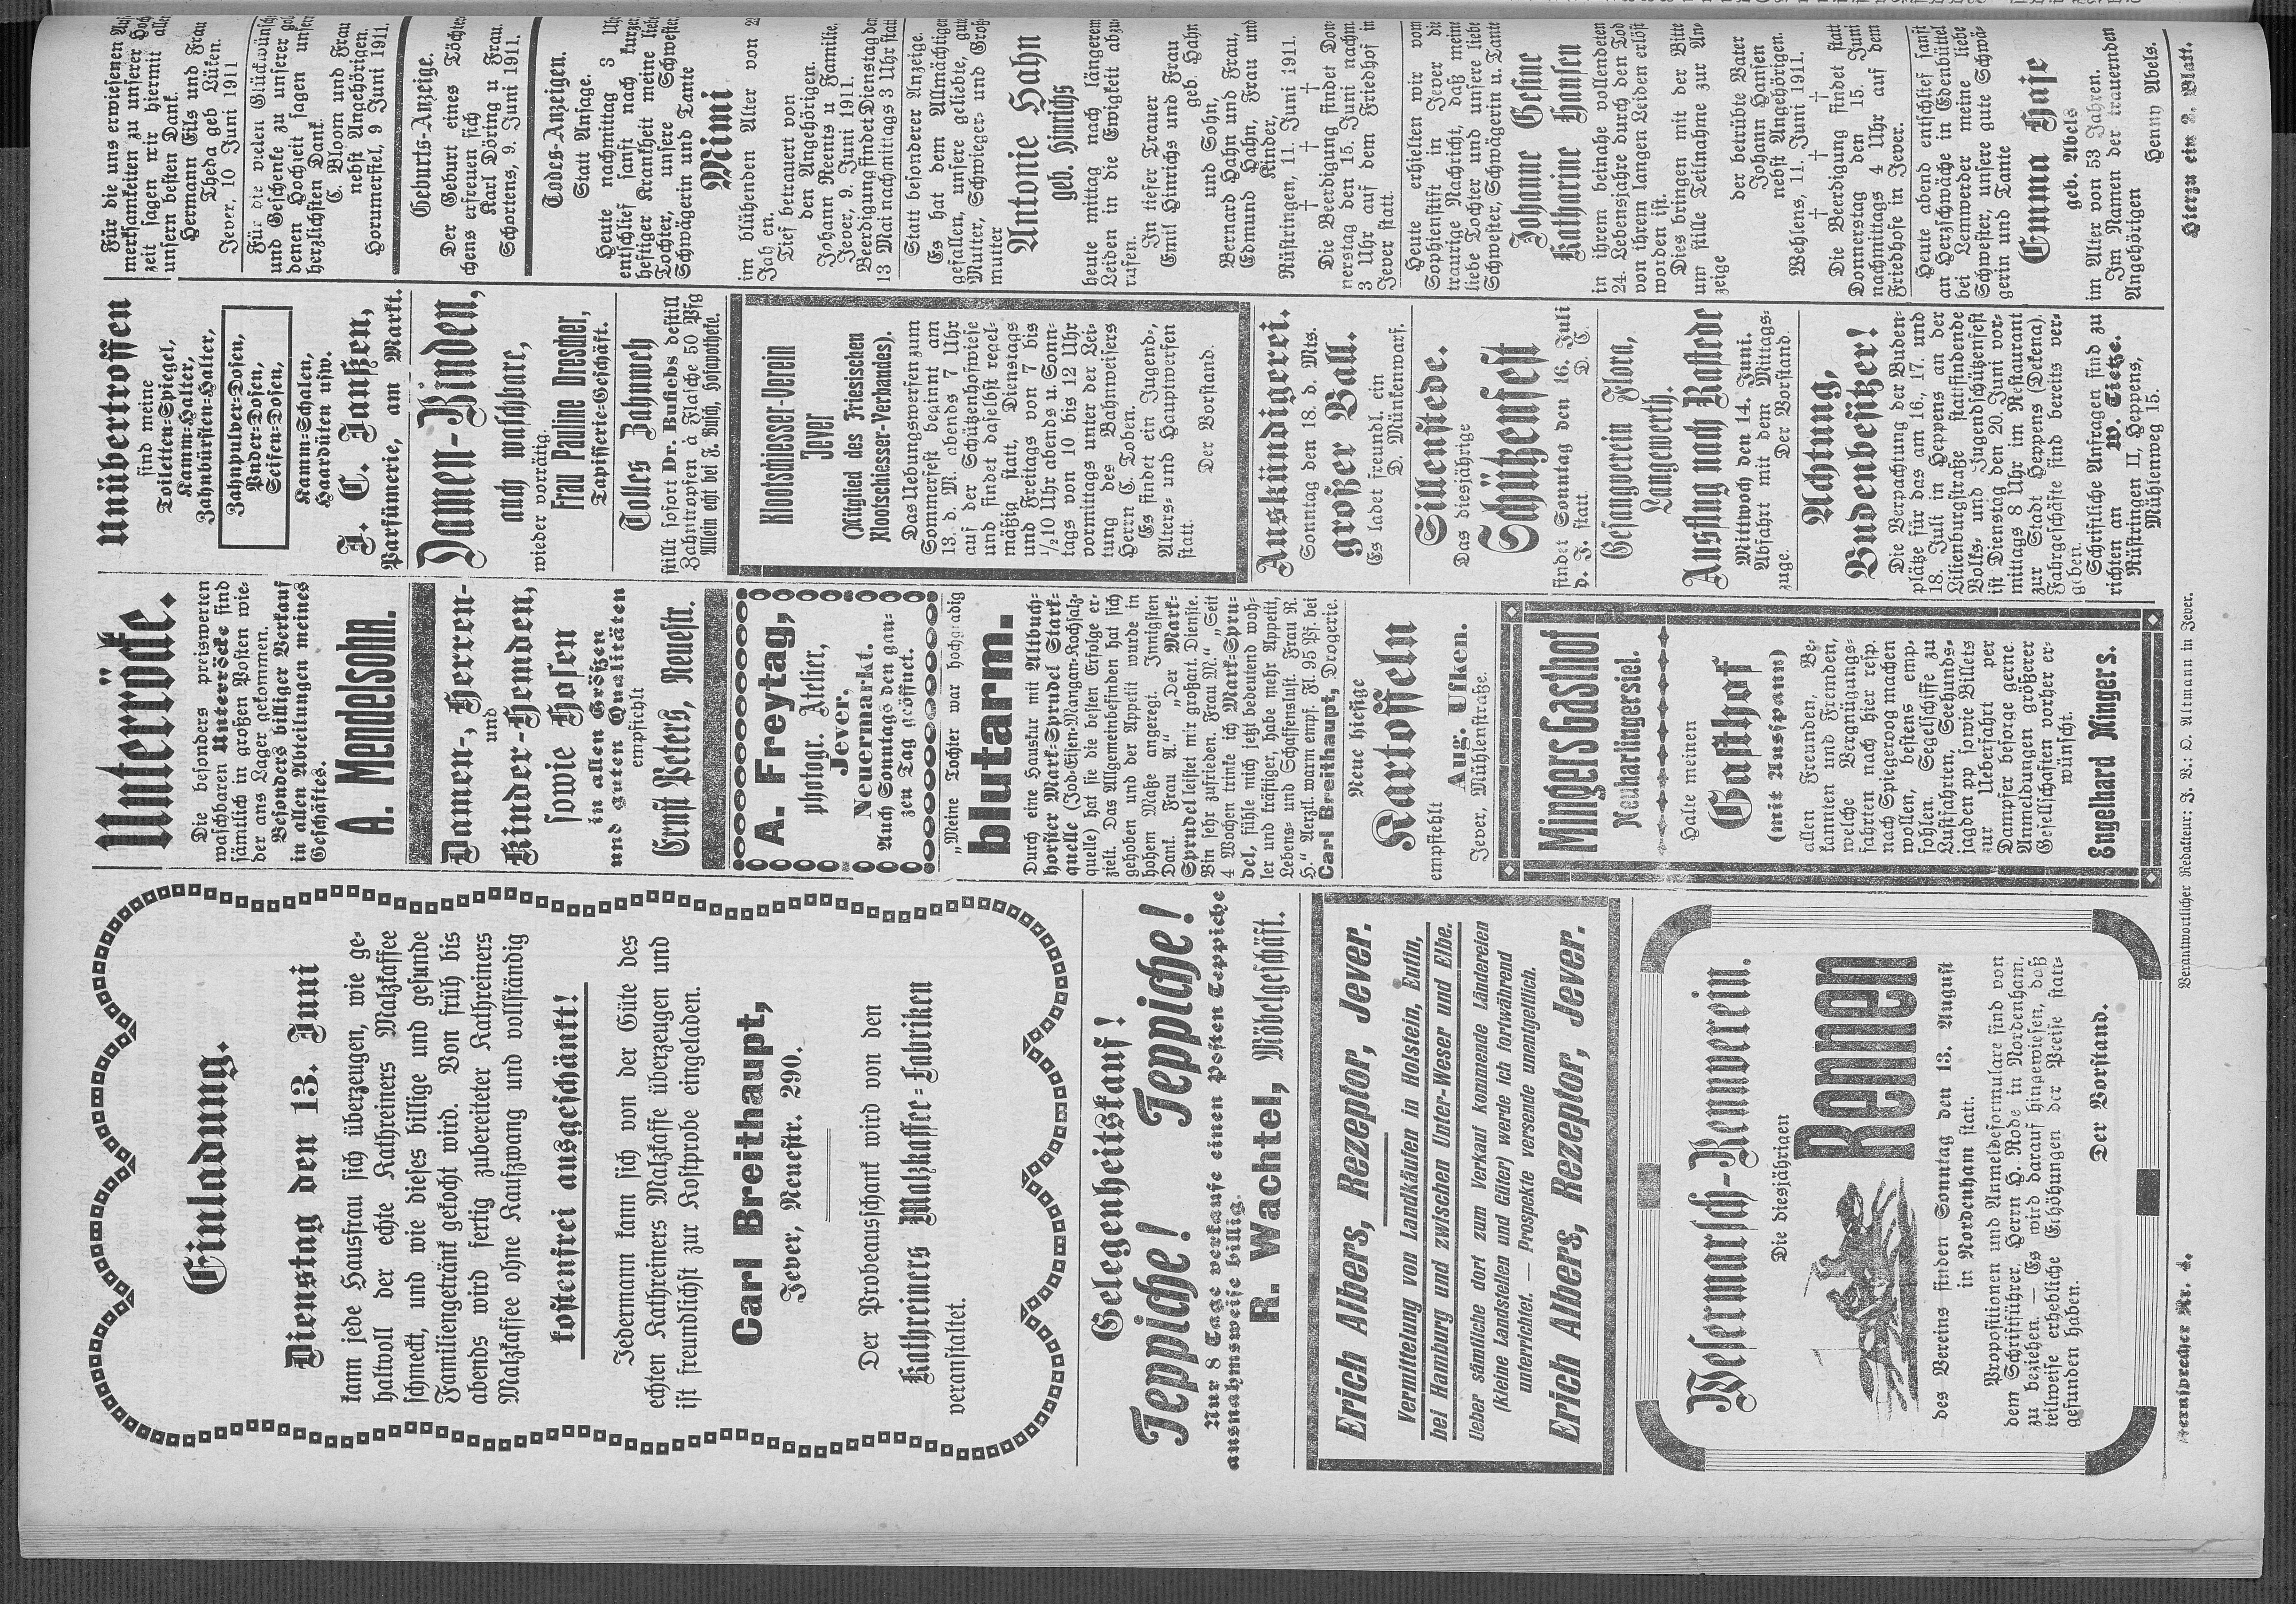 Einladung.
Dienstag den 13. Juni
kann jede Hausfrau sich überzeugen, wie ge-
haltvoll der echte Kathreiners Malzkaffee
schmeckt, und wie dieses billige und gesunde
Familiengetränk gekocht wird. Von früh bis
abends wird fertig zubereiteter Kathreiners
Malzkaffee ohne Kaufzwang und vollständig
kostenfrei ausgeschänkt!
Jedermann kann sich von der Güte des
echten Kathreiners Malzkaffe überzeugen und
ist freundlichst zur Kostprobe eingeladen.
Carl Breithaupt,
Jever, Neuestr. 290.
Der Probeausschank wird von den
Kathreiners Malzkaffee-Fabriken
veranstaltet.
Gelegenheitskauf!
Teppiche! Teppiche!
Nur 8 Tage verkaufe einen Posten Teppiche
ausnahmsweise billig.
R. Wachtel, Möbelgeschäft.
Erich Albers, Rezeptor, Jever.
Vermittelung von Landkäufen in Holstein, Eutin,
bei Hamburg und zwischen Unter-Weser und Elbe.
Ueber sämtliche dort zum Verkauf kommende Ländereien
(kleine Landstellen und Güter) werde ich fortwährend
unterrichtet. — Prospekte versende unentgeltlich.
Erich Albers, Rezeptor, Jever.
Wesermarsch-Rennverein.
Die diesjährigen
Rennen
des Vereins finden Sonntag den 13. August
in Nordenham statt.
Propositionen und Anmeldeformulare sind von
dem Schriftführer, Herrn H. Rode in Nordenham,
zu beziehen. — Es wird darauf hingewiesen, daß
teilweise erhebliche Erhöhungen der Preise statt-
gefunden haben.
Der Vorstand.
Unterröcke.
Die besonders preiswerten
waschbaren Unterröcke sind
sämtlich in großen Posten wie-
der ans Lager gekommen.
Besonders billiger Verkauf
in allen Abteilungen meines
Geschäftes.
A. Mendelsohn.
Damen-, Herren-
und
Kinder-Hemden,
sowie Hosen
in allen Größen
und guten Qualitäten
empfiehlt
Ernst Peters, Neuestr.
A. Freytag,
photogr. Atelier,
Jever,
Neuermarkt.
Auch Sonntags den gan-
zen Tag geöffnet.
„Meine Tochter war hochgradig
blutarm.
Durch eine Hauskur mit Altbuch-
horster Mark-Sprudel Stark-
quelle (Jod-Eisen-Mangan-Kochsalz-
quelle) hat sie die besten Erfolge er-
zielt. Das Allgemeinbefinden hat sich
gehoben und der Appetit wurde in
hohem Maße angeregt. Innigsten
Dank. Frau A.“ „Der Mark-
Sprudel leistet mir großart. Dienste.
Bin sehr zufrieden. Frau M.“ „Seit
4 Wochen trinke ich Mark-Spru-
del, fühle mich jetzt bedeutend woh-
ler und kräftiger, habe mehr Appetit,
Lebens- und Schaffenslust. Frau R.
H.“ Aerztl. warm empf. Fl. 95 Pf. bei
Carl Breithaupt, Drogerie.
Neue hiesige
Kartoffeln
empfiehlt Aug. Ulken.
Jever, Mühlenstraße.
Mingers Gasthof
Neuharlingersiel.
Halte meinen
Gasthof
(mit Ausspann)
allen Freunden, Be-
kannten und Fremden,
welche Vergnügungs-
fahrten nach hier resp.
nach Spiegeroog machen
wollen, bestens emp-
fohlen. Segelschiffe zu
Lustfahrten, Seehunds-
jagden pp sowie Billets
zur Ueberfahrt per
Dampfer besorge gerne.
Anmeldungen größerer
Gesellschaften vorher er-
wünscht.
Engelhard Mingers.
Unübertroffen
sind meine
Toiletten-Spiegel,
Kamm-Halter,
Zahnbürsten-Halter,
Zahnpulver-Dosen,
Puder-Dosen,
Seifen-Dosen,
Kamm-Schalen,
Haardüten usw.
J. C. Janßen,
Parfümerie, am Markt.
Damen-Binden,
auch waschbare,
wieder vorrätig.
Frau Pauline Drescher,
Tapisserie-Geschäft.
Tolles Zahnweh
stillt sofort Dr. Bufleb's destill
Zahntropfen à Flasche 50 Pfg
Allein echt bei F. Busch, Hofapotheke.
Klootschiesser-Verein
Jever
(Mitglied des Friesischen
Klootschiesser-Verbandes).
Das Uebungswerfen zum
Sommerfest beginnt am
13. d. M. abends 7 Uhr
auf der Schützenhofwiese
und findet daselbst regel-
mäßig statt, Dienstags
und Freitags von 7 bis
½10 Uhr abends u. Sonn-
tags von 10 bis 12 Uhr
vormittags unter der Lei-
tung des Bahnweisers
Herrn C. Toben.
Es findet ein Jugend-,
Alters- und Hauptwerfen
statt.
Der Vorstand.
Auskündigerei.
Sonntag den 18. d. Mts.
großer Ball.
Es ladet freundl. ein
D. Münkenwarf.
Sillenstede.
Das diesjährige
Schützenfest
findet Sonntag den 16. Juli
d. J. statt. D. C.
Gesangverein Flora,
Langewerth.
Ausflug nach Rastede
Mittwoch den 14. Juni.
Abfahrt mit dem Mittags-
zuge. Der Vorstand.
Achtung,
Budenbesitzer!
Die Verpachtung der Buden-
plätze für das am 16., 17. und
18. Juli in Heppens an der
Lilienburgstraße stattfindende
Volks- und Jugendschützenfest
ist Dienstag den 20. Juni vor-
mittags 8 Uhr im Restaurant
zur Stadt Heppens (Dekena).
Fahrgeschäfte sind bereits ver-
geben.
Schriftliche Anfragen sind zu
richten an W. Tietze.
Rüstringen II, Heppens,
Mühlenweg 15.
Für die uns erwiesenen
merksamkeiten zu unserer
zeit sagen wir hiermit
unsern besten Dank.
Hermann Eils und Frau
Theda geb Lüken.
Jever, 10 Juni 1911
Für die vielen Glückwünsch
und Geschenke zu unserer
denen Hochzeit sagen unser
herzlichsten Dank.
C. Bloom und Frau
nebst Angehörigen.
Horumersiel, 9 Juni 1911.
Geburts-Anzeige.
Der Geburt eines Töchter
chens erfreuen sich
Karl Döring u Frau.
Schortens, 9. Juni 1911.
Todes-Anzeigen.
Statt Ansage.
Heute nachmittag 3 Uhr
entschlief sanft nach kurzer
heftiger Krankheit meine liebe
Tochter, unsere Schwester,
Schwägerin und Tante
Mimi
im blühenden Alter von
Jahren.
Tief betrauert von
den Angehörigen.
Johann Reents u Familie.
Jever, 9. Juni 1911.
Beerdigung findet Dienstag den
13 Mai nachmittags 3 Uhr statt
Statt besonderer Anzeige.
Es hat dem Allmächtigen
gefallen, unsere geliebte, gute
Mutter, Schwieger- und Groß
mutter
Antonie Hahn
geb. Hinrichs
heute mittag nach längerem
Leiden in die Ewigkeit abzu
rufen.
In tiefer Trauer
Emil Hinrichs und Frau
geb. Hahn
und Sohn,
Bernard Hahn und Frau,
Edmund Hahn, Frau und
Kinder,
Rüstringen, 11. Juni 1911.
† † †
Die Beerdigung findet Don
nerstag den 15. Juni nachm
3 Uhr auf dem Friedhof in
Jever statt.
Heute erhielten wir vom
Sophienstift in Jever die
traurige Nachricht, daß meine
liebe Tochter und unsere liebe
Schwester, Schwägerin u. Tante
Johanne Gesine
Katharine Hansen
in ihrem beinahe vollendeten
24. Lebensjahre durch den Tod
von ihrem langen Leiden erlöst
worden ist.
Dies bringen mit der Bitte
um stille Teilnahme zur An-
zeige
der betrübte Vater
Johann Hansen
nebst Angehörigen.
Wehlens, 11. Juni 1911.
† † †
Die Beerdigung findet statt
Donnerstag den 15. Juni
nachmittags 4 Uhr auf dem
Friedhofe in Jever.
Heute abend entschlief sanft
an Herzschwäche in Edenbüttel
bei Lemwerder meine liebe
Schwester, unsere gute Schwä-
gerin und Tante
Emma Haje
geb. Abels
im Alter von 53 Jahren.
Im Namen der trauernden
Angehörigen
Henny Abels.
Fernsprecher Nr. 4.
Verantwortlicher Redakteur: J. V.: O. Altmann in Jever.
Hierzu ein 2. Blatt.